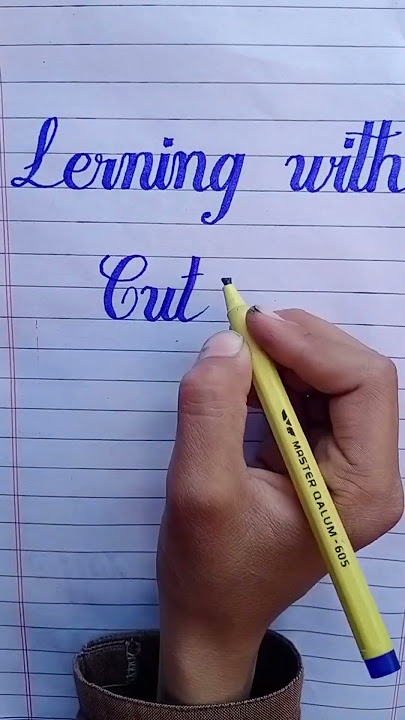 Lerning with
Cut
MASTER QALUM-605